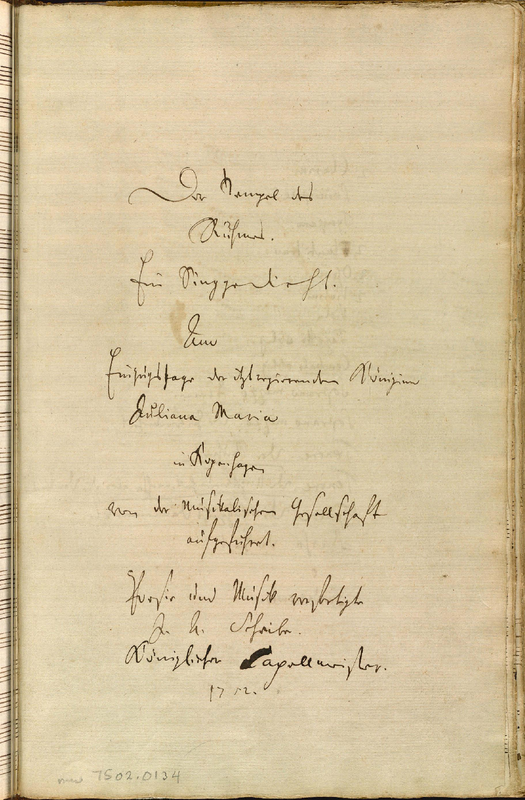 Der Tempel des
Ruhmes.
Ein Singgedicht.
Am
Einzugstage der itztregierenden Königinn
Juliana Maria
in Kopenhagen
von der Musikalischen Gesellschaft
aufgeführet.
Poesie und Musik verfertigte
J. A. Scheibe.
Königlicher Capellmeister.
1752.
mu 7502.0134